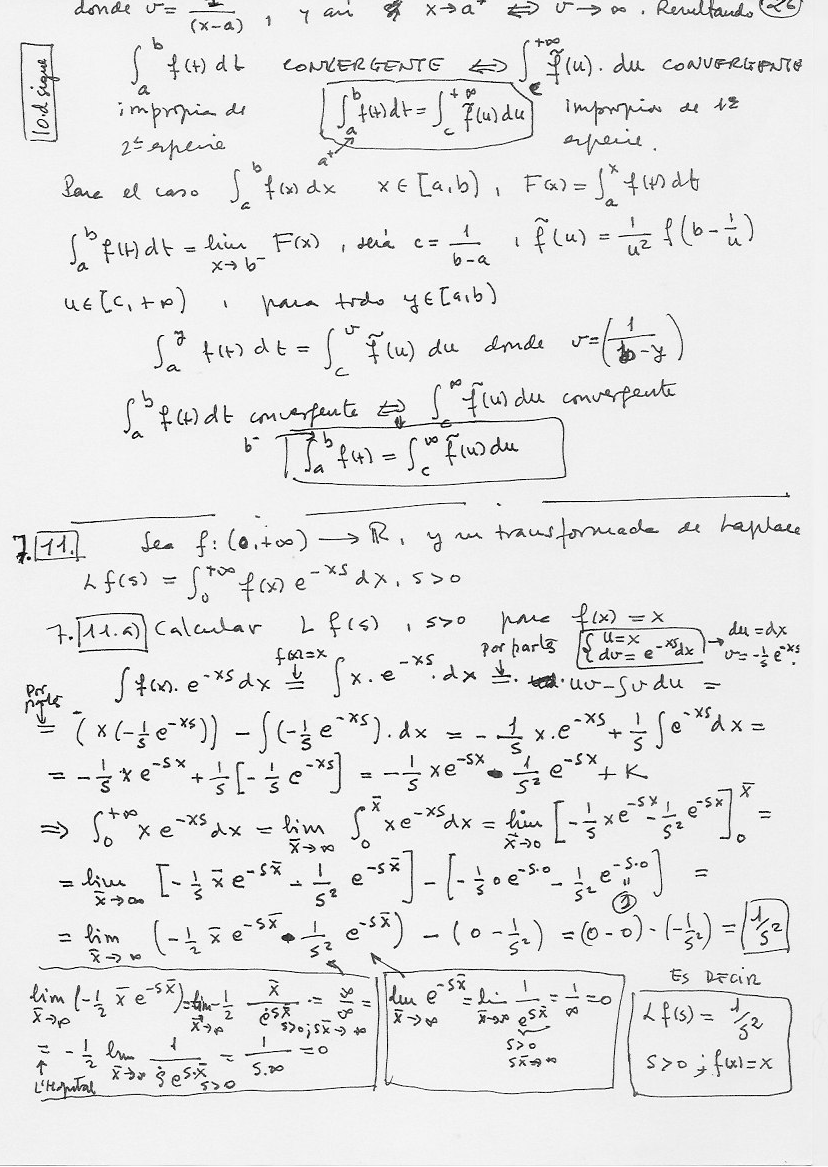 donde v = 1/(x-a) , y así x→a⁺ ⟺ v→∞ . Resultando (26)
10.d sigue
∫_a^b f(t) dt CONVERGENTE ⟺ ∫_c^{+∞} f̃(u). du CONVERGENTE
impropia de 2ª especie
∫_{a}^b f(t)dt = ∫_c^{+∞} f̃(u)du
a⁺
impropia de 1ª especie.
Para el caso ∫_a^b f(x) dx x∈[a,b) , F(x) = ∫_a^x f(t) dt
∫_a^b f(t) dt = lim_{x→b⁻} F(x) , será c = 1/(b-a) , f̃(u) = 1/u² f(b - 1/u)
u∈[c,+∞) , para todo y∈[a,b)
∫_a^y f(t) dt = ∫_c^v f̃(u) du donde v = (1/(b-y))
∫_a^b f(t) dt convergente ⟺ ∫_c^∞ f̃(u) du convergente
b⁻ → ∫_a^b f(t) = ∫_c^∞ f̃(u) du
7. 11. Sea f: (0,+∞) → ℝ, y su transformada de Laplace
L f(s) = ∫_0^{+∞} f(x) e^{-xs} dx, s>0
7. 11.a) Calcular L f(s) , s>0 para f(x) = x
∫ f(x). e^{-xs} dx =(f(x)=x) ∫ x. e^{-xs}. dx =(por partes) uv - ∫v du =
{ u=x
dv = e^{-xs}dx → du = dx
v = -1/s e^{-xs}.
por partes
= (x(-1/s e^{-xs})) - ∫(-1/s e^{-xs}). dx = -1/s x. e^{-xs} + 1/s ∫e^{-xs} dx =
= -1/s x e^{-sx} + 1/s [-1/s e^{-xs}] = -1/s x e^{-sx} - 1/s² e^{-sx} + K
⟹ ∫_0^{+∞} x e^{-xs} dx = lim_{x̄→∞} ∫_0^{x̄} x e^{-xs} dx = lim_{x̄→0} [-1/s x e^{-sx} - 1/s² e^{-sx}]_0^{x̄} =
= lim_{x̄→∞} [-1/s x̄ e^{-sx̄} - 1/s² e^{-sx̄}] - [-1/s 0 e^{-s·0} - 1/s² e^{-s·0}] =
" 1
= lim_{x̄→∞} (-1/2 x̄ e^{-sx̄} - 1/s² e^{-sx̄}) - (0 - 1/s²) = (0-0) - (-1/s²) = 1/s²
lim_{x̄→∞} (-1/2 x̄ e^{-sx̄}) = lim_{x̄→∞} -1/2 x̄/e^{sx̄} = ∞/∞ =
s>0; sx̄→∞
= -1/2 lim_{x̄→∞} 1/(s e^{s·x̄}) = 1/(s.∞) = 0
s>0
L'Hopital
lim_{x̄→∞} e^{-sx̄} = lim_{x̄→∞} 1/e^{sx̄} = 1/∞ = 0
s>0
sx̄→∞
ES DECIR
L f(s) = 1/s²
s>0 ; f(x) = x